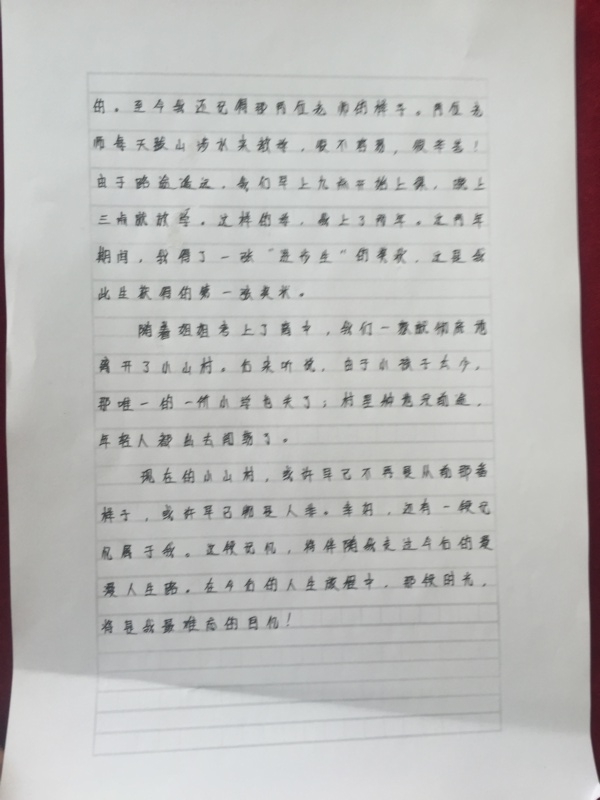 的。至今我还记得那两位老师的样子。两位老
师每天跋山涉水来教学，很不容易，很辛苦！
由于路途遥远，我们早上九点开始上课，晚上
三点就放学。这样的学，我上了两年。这两年
期间，我得了一张“进步生”的奖状，这是我
此生获得的第一张奖状。
随着姐姐考上了高中，我们一家就彻底地
离开了小山村。后来听说，由于小孩子太少，
那唯一的一所小学也关了；村里
年轻人都出去闯荡了。
现在的小山村，或许早已不再是从前那番
样子，或许早已物是人非。幸好，还有一段记
忆属于我。这段记忆，将伴随我走过今后的漫
漫人生路。在今后的人生旅程中，那段时光，
将是我最难忘的回忆！